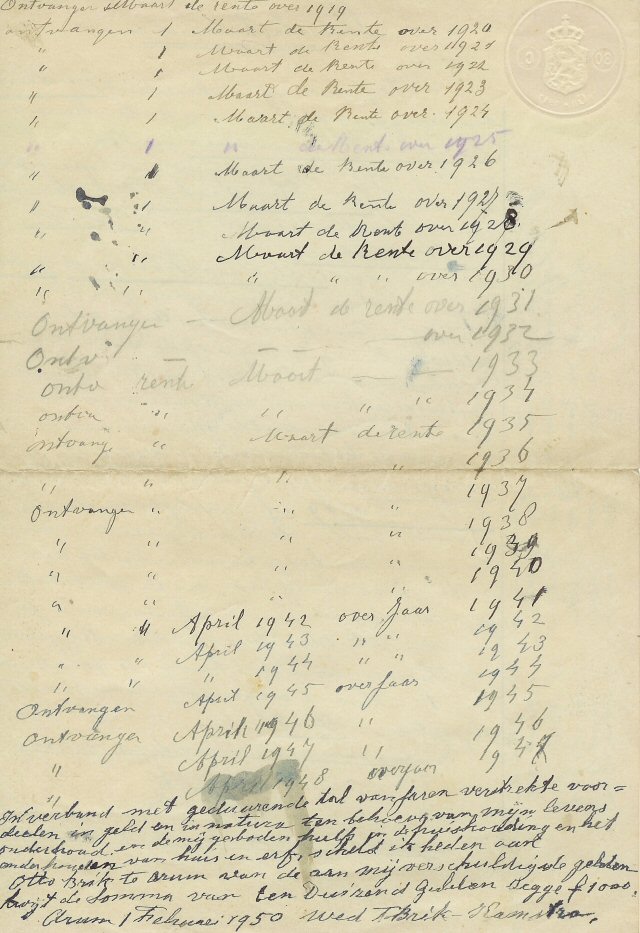 Ontvangen 1 Maart de rente over 1919
ontvangen 1 Maart de Rente over 1920
" 1 Maart de Rente over 1921
" 1 Maart de Rente over 1922
" 1 Maart de Rente over 1923
" 1 Maart de Rente over 1924
" 1 " de Rente over 1925
" 1 Maart de Rente over 1926
" 1 Maart de Rente over 1927
" " Maart de Rente over 1928
" " Maart de Rente over 1929
" " " " " over 1930
Ontvangen — Maart de rente over 1931
Ontv — over 1932
ontv rente Maart — 1933
" " " " 1934
ontvang " Maart de rente 1935
1936
" " " " 1937
Ontvangen " " " 1938
" " " " 1939
" " " " 1940
" " " " 1941
" " April 1942 over Jaar 1942
" " April 1943 " " 1943
" " " 1944 " " 1944
Ontvangen April 1945 over Jaar 1945
Ontvangen April 1946 " 1946
" April 1947 " 1947
" April 1948 overjaar
In verband met gedurende tal van jaren verstrekte voor=
deelen in geld en in natura ten behoeve van mijn levens
onderhoud en de mij geboden hulp in de huishouding en het
onderhouden van huis en erf, scheld ik heden aan
Otto Brik te Arum van de aan mij verschuldigde gelden
kwijt de Somma van Een Duizend Gulden zegge f 1000.
Arum 1 Februari 1950 Wed T Brik-